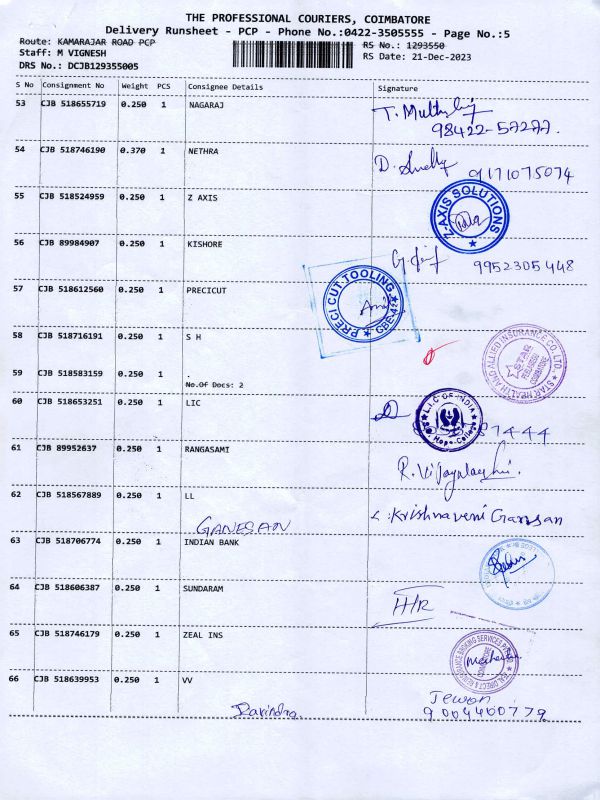 THE PROFESSIONAL COURIERS, COIMBATORE
Delivery Runsheet - PCP - Phone No.:0422-3505555 - Page No.:5
Route: KAMARAJAR ROAD PCP RS No.: 1293550
Staff: M VIGNESH RS Date: 21-Dec-2023
DRS No.: DCJB129355005
S No Consignment No Weight PCS Consignee Details Signature
53 CJB 518655719 0.250 1 NAGARAJ
98422-57277.
54 CJB 518746190 0.370 1 NETHRA
9171075074
55 CJB 518524959 0.250 1 Z AXIS
Z-AXIS SOLUTIONS
56 CJB 89984907 0.250 1 KISHORE
9952305448
57 CJB 518612560 0.250 1 PRECICUT
PRECI CUT TOOLING
58 CJB 518716191 0.250 1 S H
STAR HEALTH AND ALLIED INSURANCE CO. LTD.
59 CJB 518583159 0.250 1 .
No.Of Docs: 2
60 CJB 518653251 0.250 1 LIC
L.I.C OF INDIA
87444
61 CJB 89952637 0.250 1 RANGASAMI
R. Vijayalaxhi.
62 CJB 518567889 0.250 1 LL
GANESAN Krishnaveni Ganesan
63 CJB 518706774 0.250 1 INDIAN BANK
64 CJB 518606387 0.250 1 SUNDARAM
H/R
65 CJB 518746179 0.250 1 ZEAL INS
66 CJB 518639953 0.250 1 VV
Jewon
Ravindra 9004400779